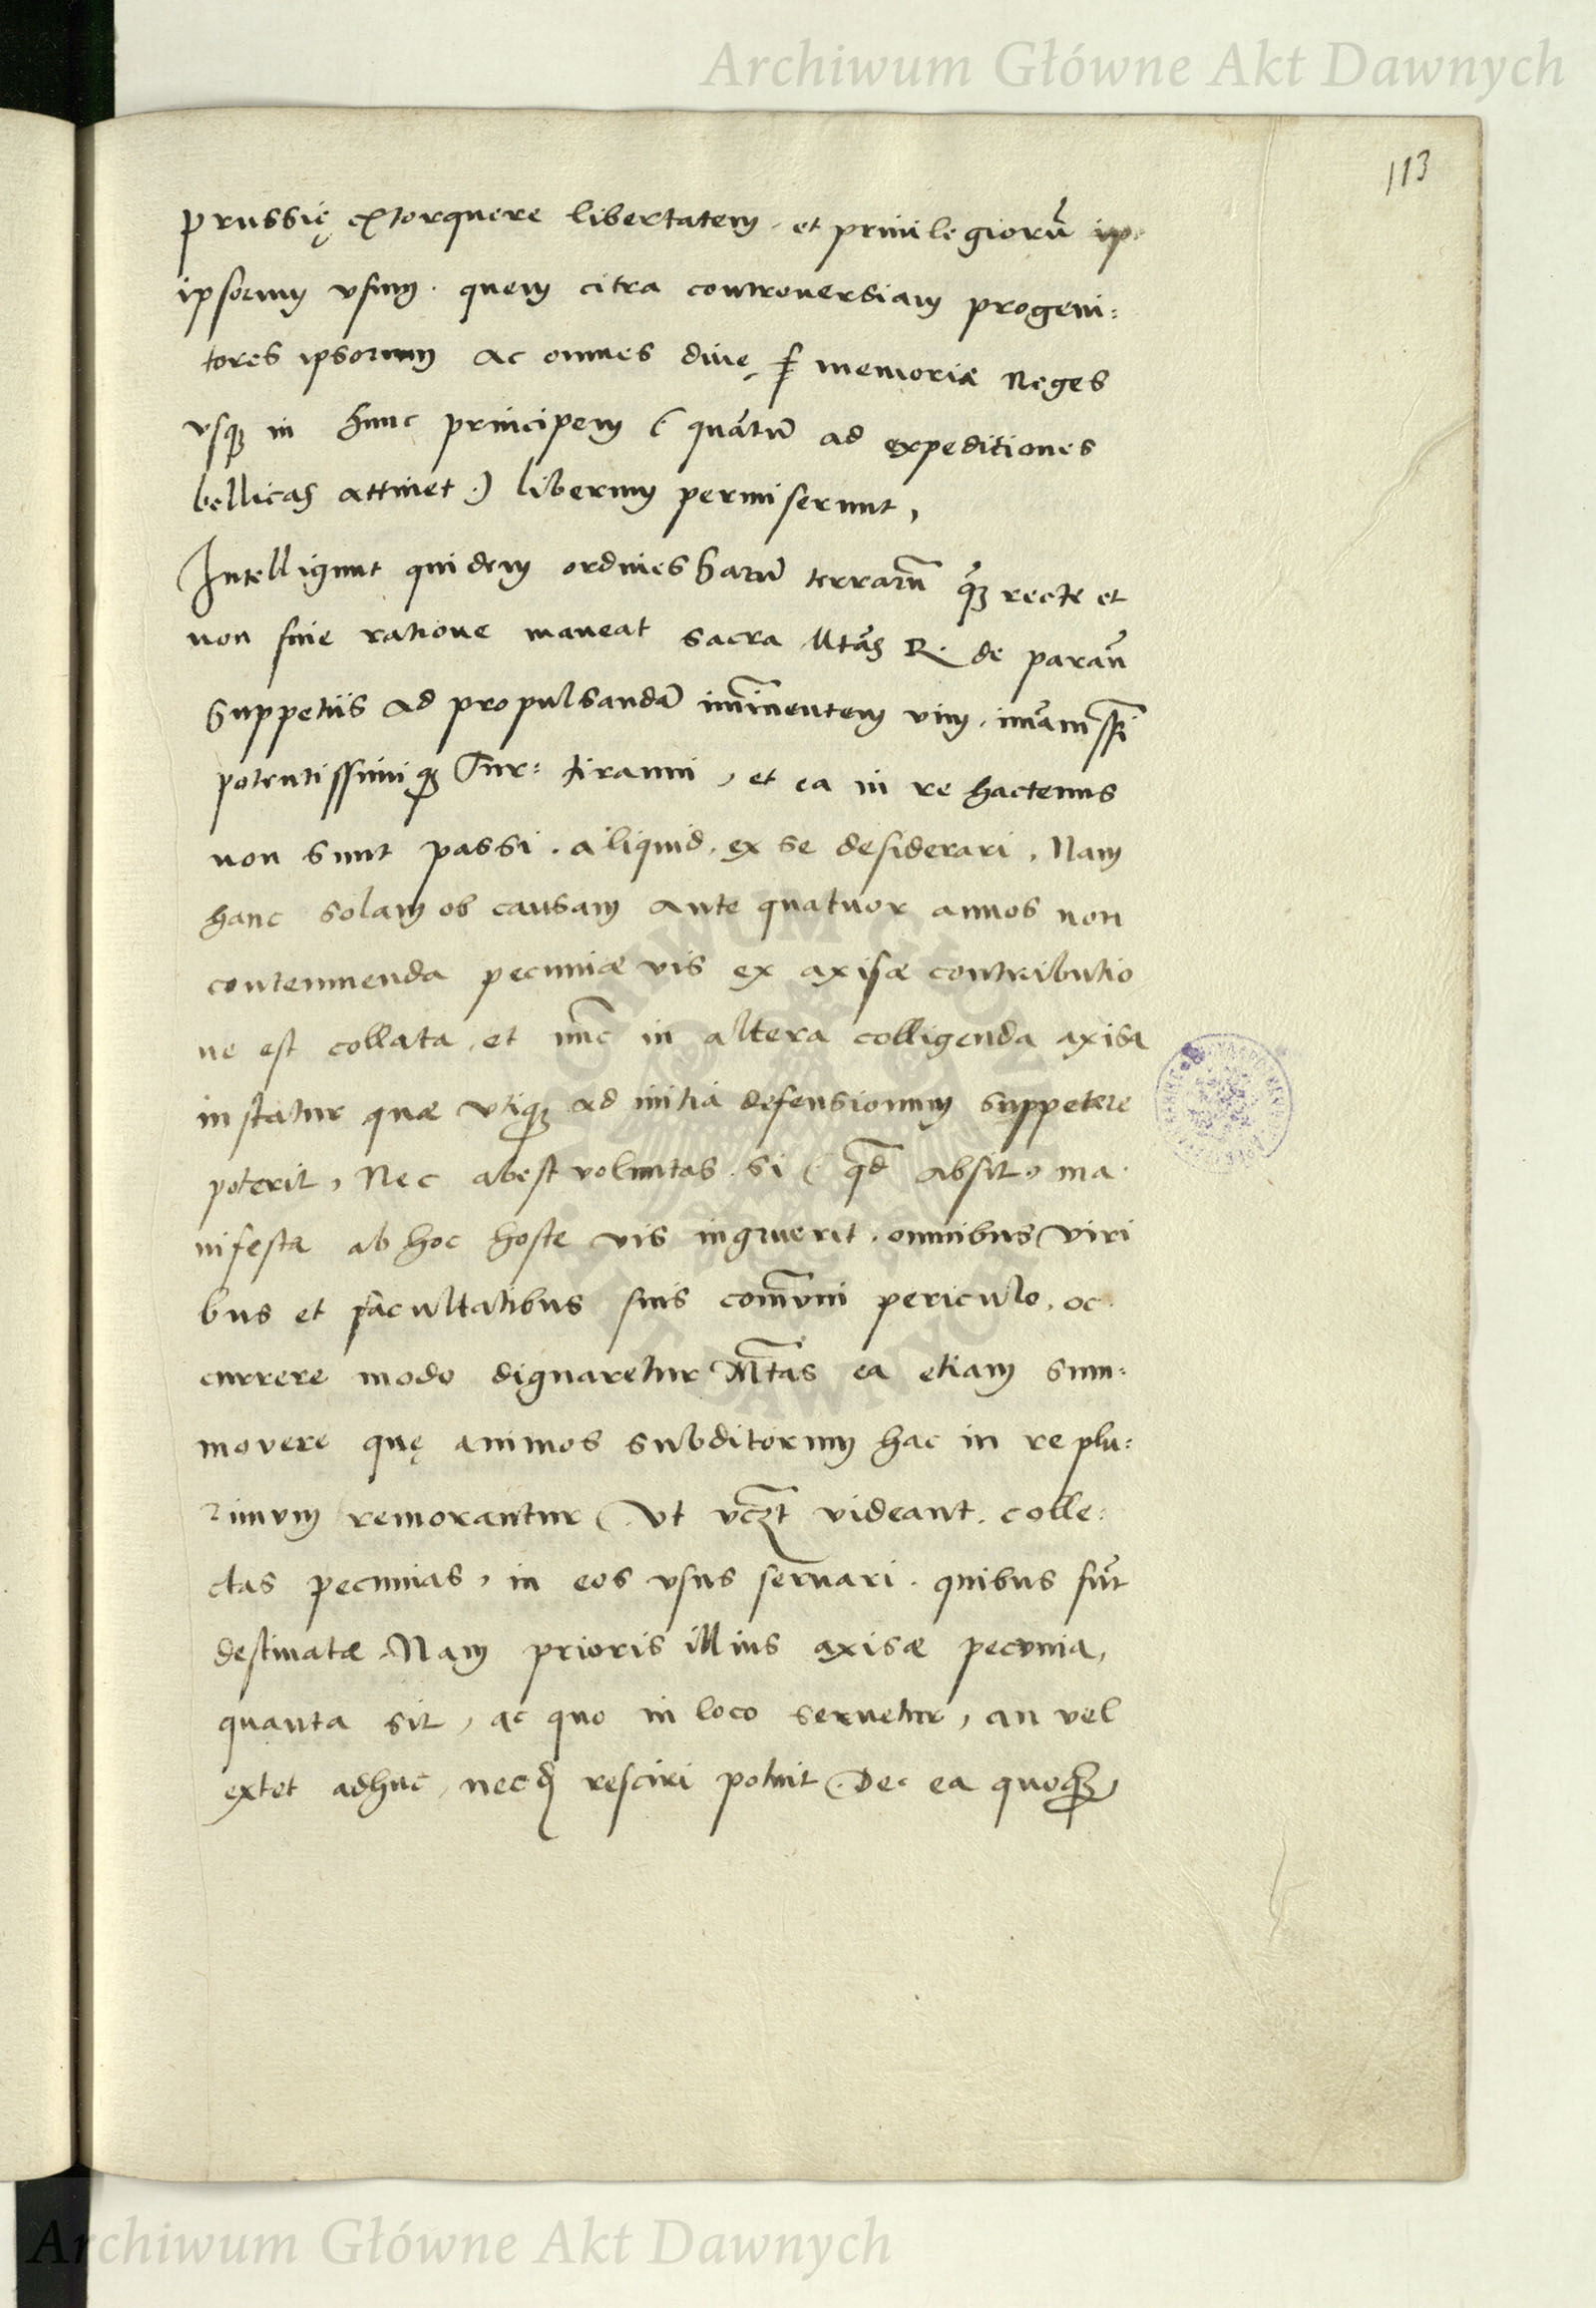 Archiwum Główne Akt Dawnych
113
Prussię extorquere libertatem, et priuilegiorū
ipsorum vsum. quem citra controuersiam progeni:
tores ipsorum ac omnes diuę memoriæ Reges
vsq; in hunc principem (quātū ad expeditiones
bellicas attinet) liberum permiserunt,
Intelligunt quidem ordines harū terrarū q̄; recte et
non sine ratione maneat sacra Mtās R. de parān
suppetiis ad propulsandā im̄inentem vim, im̄anis̄s̄i
potentissimiq; Tur: tiranni, et ea in re hactenus
non sunt passi. aliquid. ex se desiderari. Nam
hanc solam ob causam ante quatuor annos non
contemnenda pecuniæ vis ex axisæ contributio
ne est collata, et nūc in altera colligenda axisa
instatur quæ vtiq; ad initia defensionum suppetere
poterit, Nec abest voluntas. si (qd̄ absit, ma.
nifesta ab hoc hoste vis ingruerit. omnibus viri
bus et facultatibus suis com̄vni periculo, oc
currere modo dignaretur M̄tas ea etiam sum:
movere quę animos subditorum hac in re plu:
rimvm remorantur (Vt vcz̄t videant. colle:
ctas pecunias, in eos vsus seruari. quibus sūt
destinatæ. Nam prioris illius axisæ pecvnia,
quanta sit, ac quo in loco seruetur, an vel
extet adhuc, necd̄ resciri potuit. De ea quoq;
Archiwum Główne Akt Dawnych